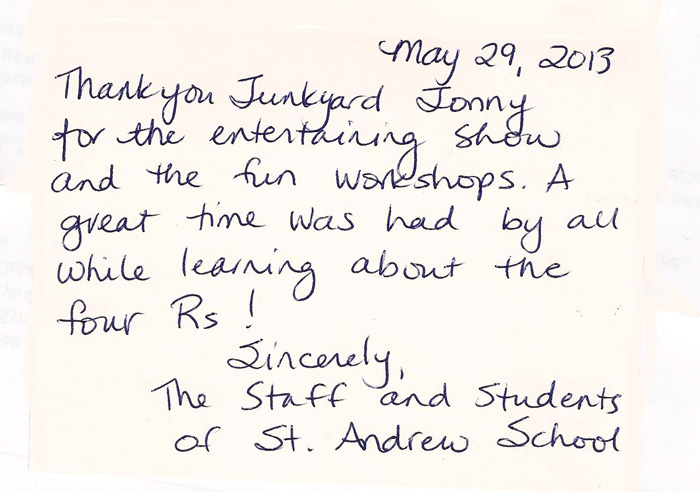 May 29, 2013
Thank you Junkyard Jonny
for the entertaining show
and the fun workshops. A
great time was had by all
while learning about the
four Rs!
Sincerely,
The Staff and Students
of St. Andrew School